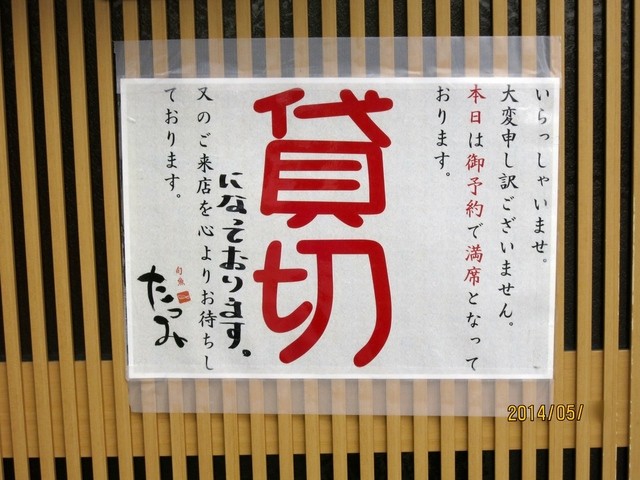 いらっしゃいませ。
大変申し訳ございません。
本日は御予約で満席となって
おります。
貸切
になっております。
又のご来店を心よりお待ちし
ております。
旬魚
たつみ
2014/05/